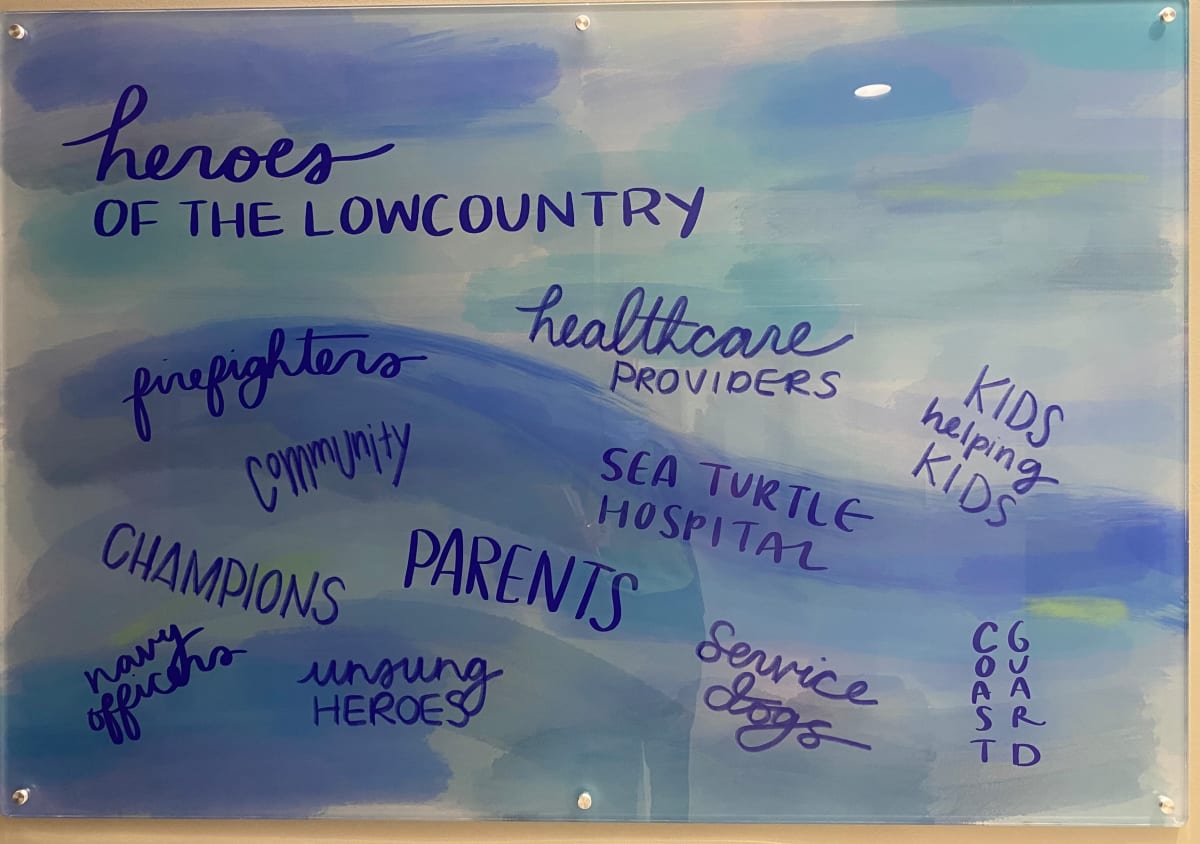 heroes
OF THE LOWCOUNTRY
healthcare
PROVIDERS
firefighters
KIDS
helping
KIDS
community
SEA TURTLE
HOSPITAL
CHAMPIONS
PARENTS
navy
officers
unsung
HEROES
service
dogs
COAST
GUARD